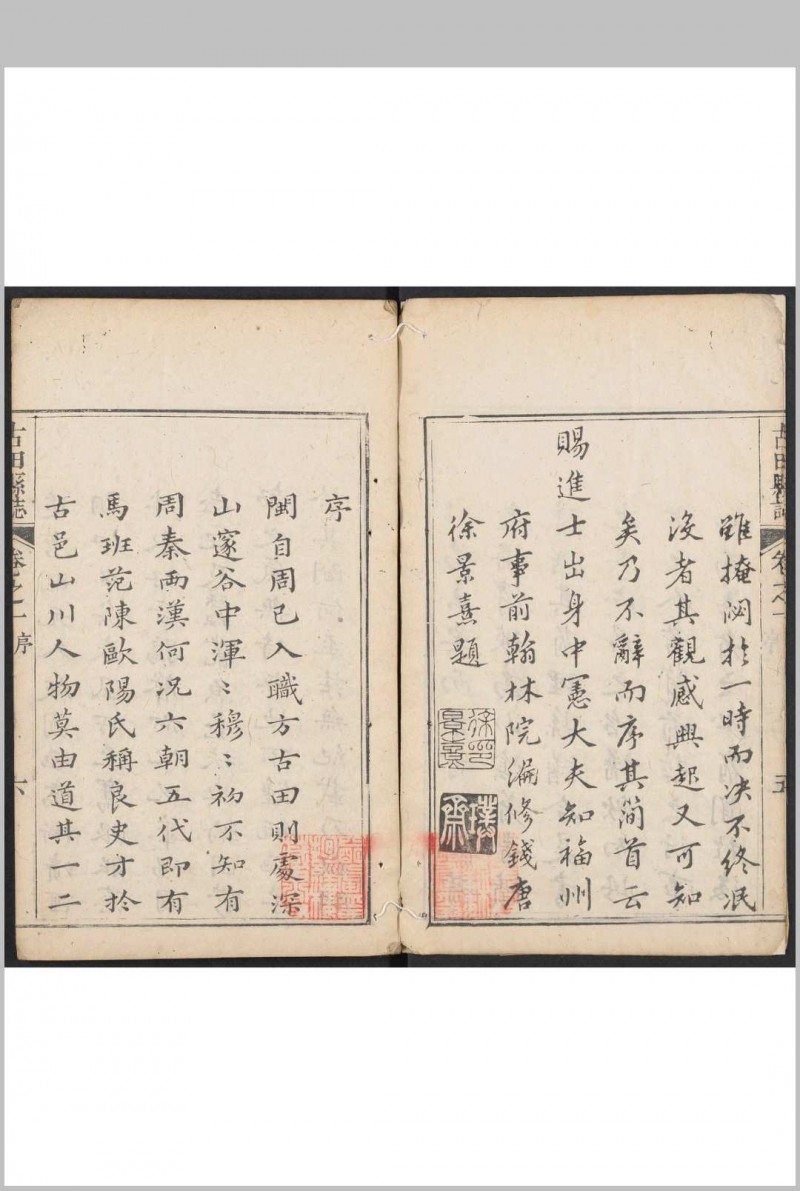 古田縣誌 卷之一 五
雖掩閟於一時而决不終泯
沒者其觀感興起又可知
矣乃不辭而序其簡首云
賜進士出身中憲大夫知福州
府事前翰林院編修錢唐
徐景熹題
徐景熹印
樸齋
序
閩自周已入職方古田則處深
山邃谷中渾〻穆〻初不知有
周秦兩漢何况六朝五代即有
馬班范陳歐陽氏稱良史才於
古邑山川人物莫由道其一二
古田縣誌 卷之一 序 六